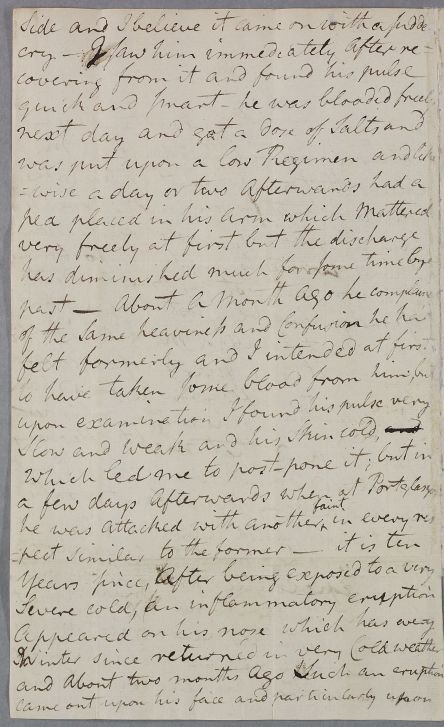 side and I believe it came on with a sudde
cry — I saw him immediately after re-
covering from it and found his pulse
quick and smart — he was blooded freely
next day and got a Dose of Salts and
was put upon a low Regimen and like
=wise a day or two Afterwards had a
pea placed in his Arm which Mattered
very freely at first but the discharge
has diminished much for some time bye
past — About a Month Ago he complained
of the Same heaviness and Confusion he had
felt formerly and I intended at first
to have taken some blood from him, but
upon examination I found his pulse very
Slow and weak and his Skin cold
which led me to post-pone it, but in
a few days Afterwards when at
he was Attacked with another faint in every res
=pect Similar to the former — it is ten
Years since, After being exposed to a very
Severe cold, An inflammatory eruption
Appeared on his nose which has every
Winter since returned in very Cold weather
and About two months Ago Such An eruption
came out upon his face and particularly upon